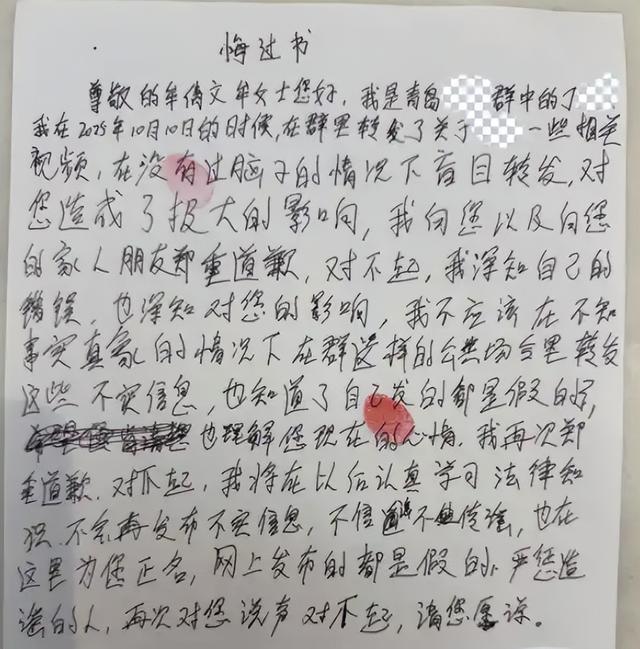 悔过书
尊敬的牟倩文牟女士您好，我是青岛 群中的丁
我在2025年10月10日的时候，在群里转发了关于 一些相关
视频，在没有过脑子的情况下盲目转发，对
您造成了极大的影响，我向您以及向您
的家人朋友郑重道歉，对不起，我深知自己的
错误，也深知对您的影响，我不应该在不知
事实真象的情况下在群这样的公共场合里转发
这些不实信息，也知道了自己发的都是假的，
也理解您现在的心情，我再次郑
重道歉，对不起，我将在以后认真学习法律知
识，不会再发布不实信息，不信 不 传谣，也在
这里为您正名，网上发布的都是假的，严惩造
谣的人，再次对您说声对不起，请您原谅。